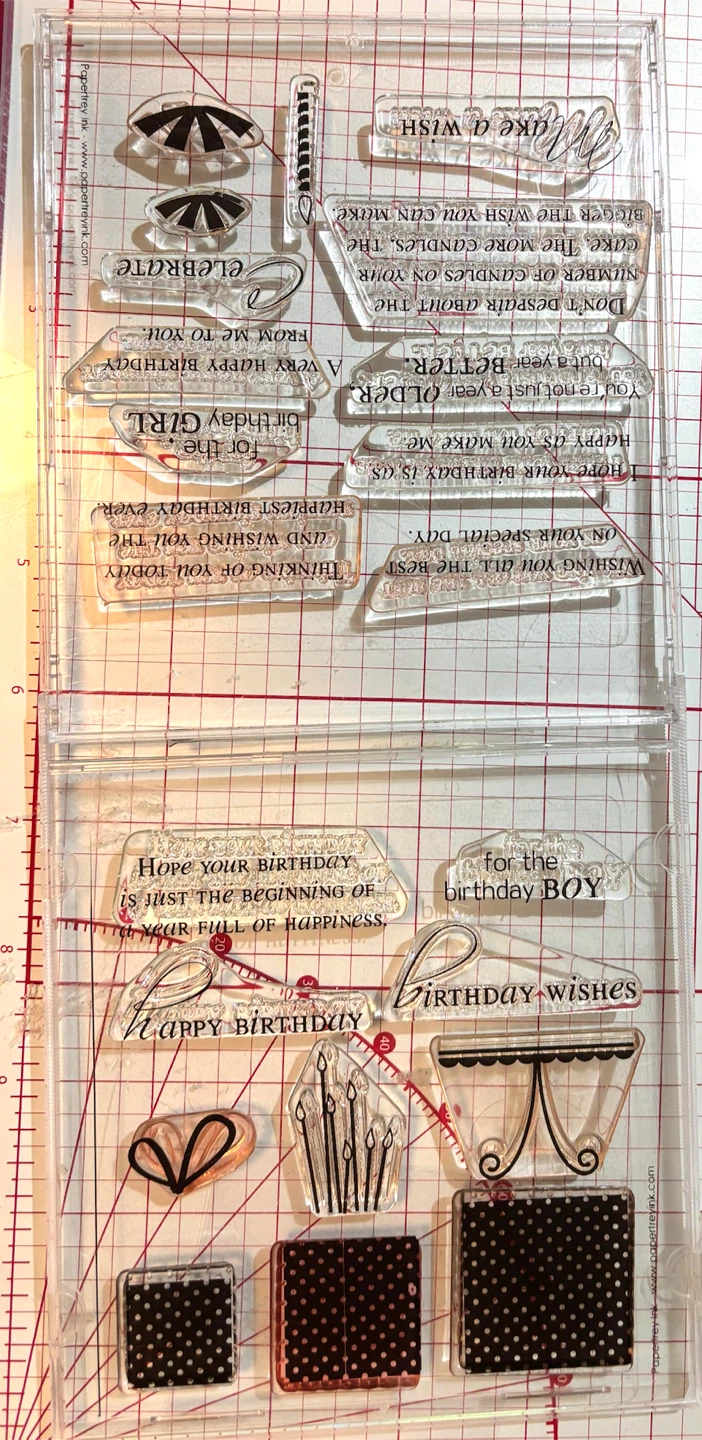 Papertrey Ink · www.papertreyink.com
Make a wish
Don't despair about the
number of candles on your
cake. The more candles, the
bigger the wish you can make.
Celebrate
A very happy birthday
from me to you.
You're not just a year OLDER,
but a year BETTER.
for the
birthday GIRL
I hope your birthday is as
happy as you make me.
Thinking of you today
and wishing you the
happiest birthday ever.
Wishing you all the best
on your special day.
5
6
7
Hope your birthday
is just the beginning of
a year full of happiness.
for the
birthday BOY
8
20
happy birthday
birthday wishes
40
9
Papertrey Ink · www.papertreyink.com